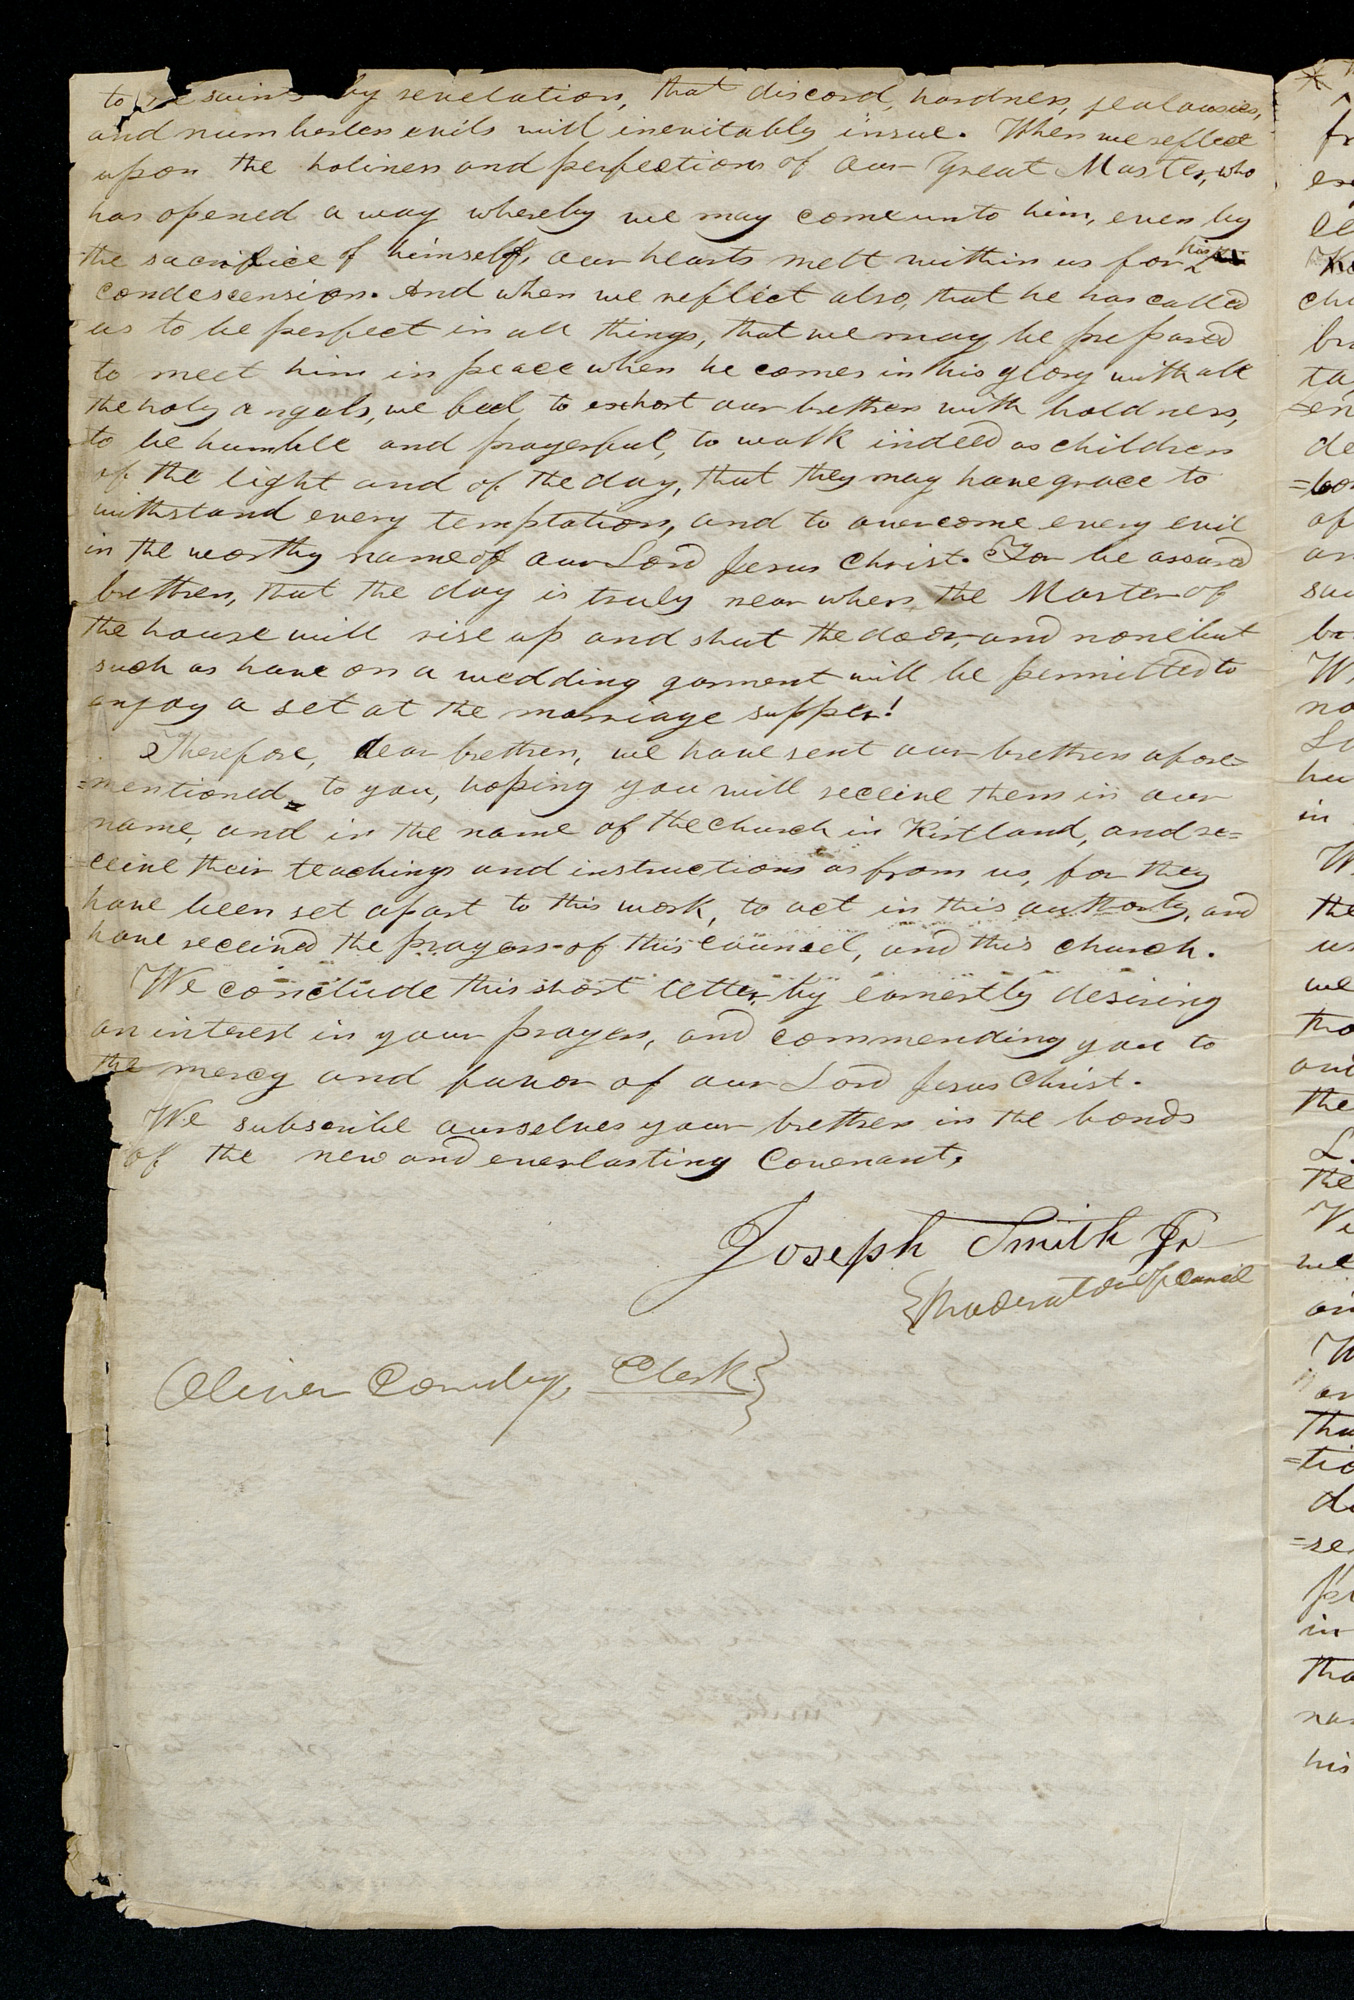 to the saints by revelation, that discord, hardness, jealousies,
and numberless evils will inevitably insue. When we reflect
upon the holiness and perfections of our great Master, who
has opened a way whereby we may come unto him, even by
the sacrifice of himself, our hearts melt within us for his
condescension. And when we reflect also, that he has called
us to be perfect in all things, that we may be prepared
to meet him in peace when he comes in his glory with all
the holy angels, we feel to exhort our brethren with boldness,
to be humble and prayerful, to walk indeed as children
of the light and of the day, that they may have grace to
withstand every temptation, and to overcome every evil
in the worthy name of our Lord Jesus Christ. For be assured
brethren, that the day is truly near when the Master of
the house will rise up and shut the door, and none but
such as have on a wedding garment will be permitted to
enjoy a set at the marriage supper!
Therefore, dear brethren, we have sent our brethren afore-
=mentioned to you, hoping you will receive them in our
name, and in the name of the church in Kirtland, and re=
=ceive their teachings and instructions as from us, for they
have been set apart to this work, to act in this authority, and
have received the prayers of this council, and this church.
We conclude this short letter by earnestly desiring
an interest in your prayers, and commending you to
the mercy and favor of our Lord Jesus Christ.
We subscribe ourselves your brethren in the bonds
of the new and everlasting Covenant,
Joseph Smith Jr
{Moderator of Council
Oliver Cowdery, Clerk}